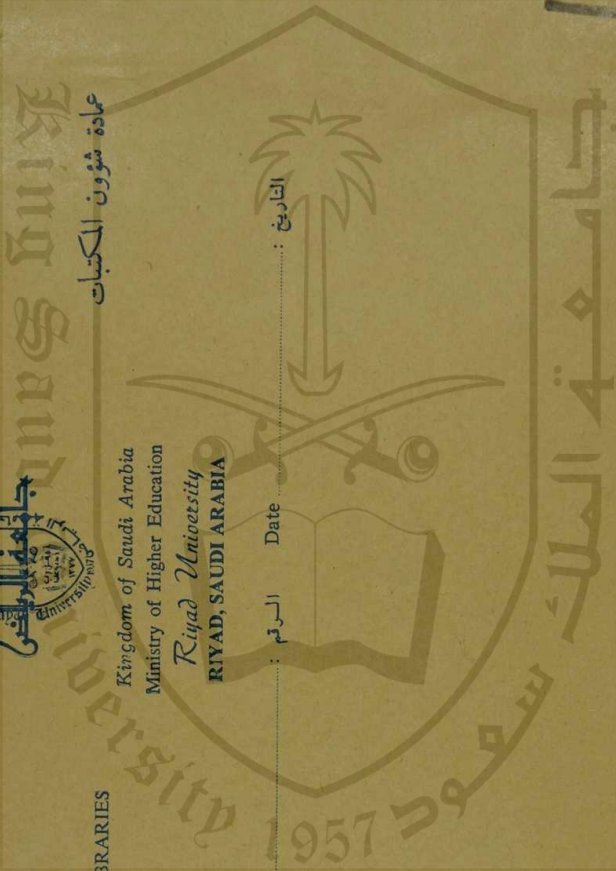 جامعة الرياض
عمادة شؤون المكتبات
Kingdom of Saudi Arabia
Ministry of Higher Education
Riyad University
RIYAD, SAUDI ARABIA
الرقم :
Date
التاريخ :
King Saud University 1957
جامعة الملك سعود